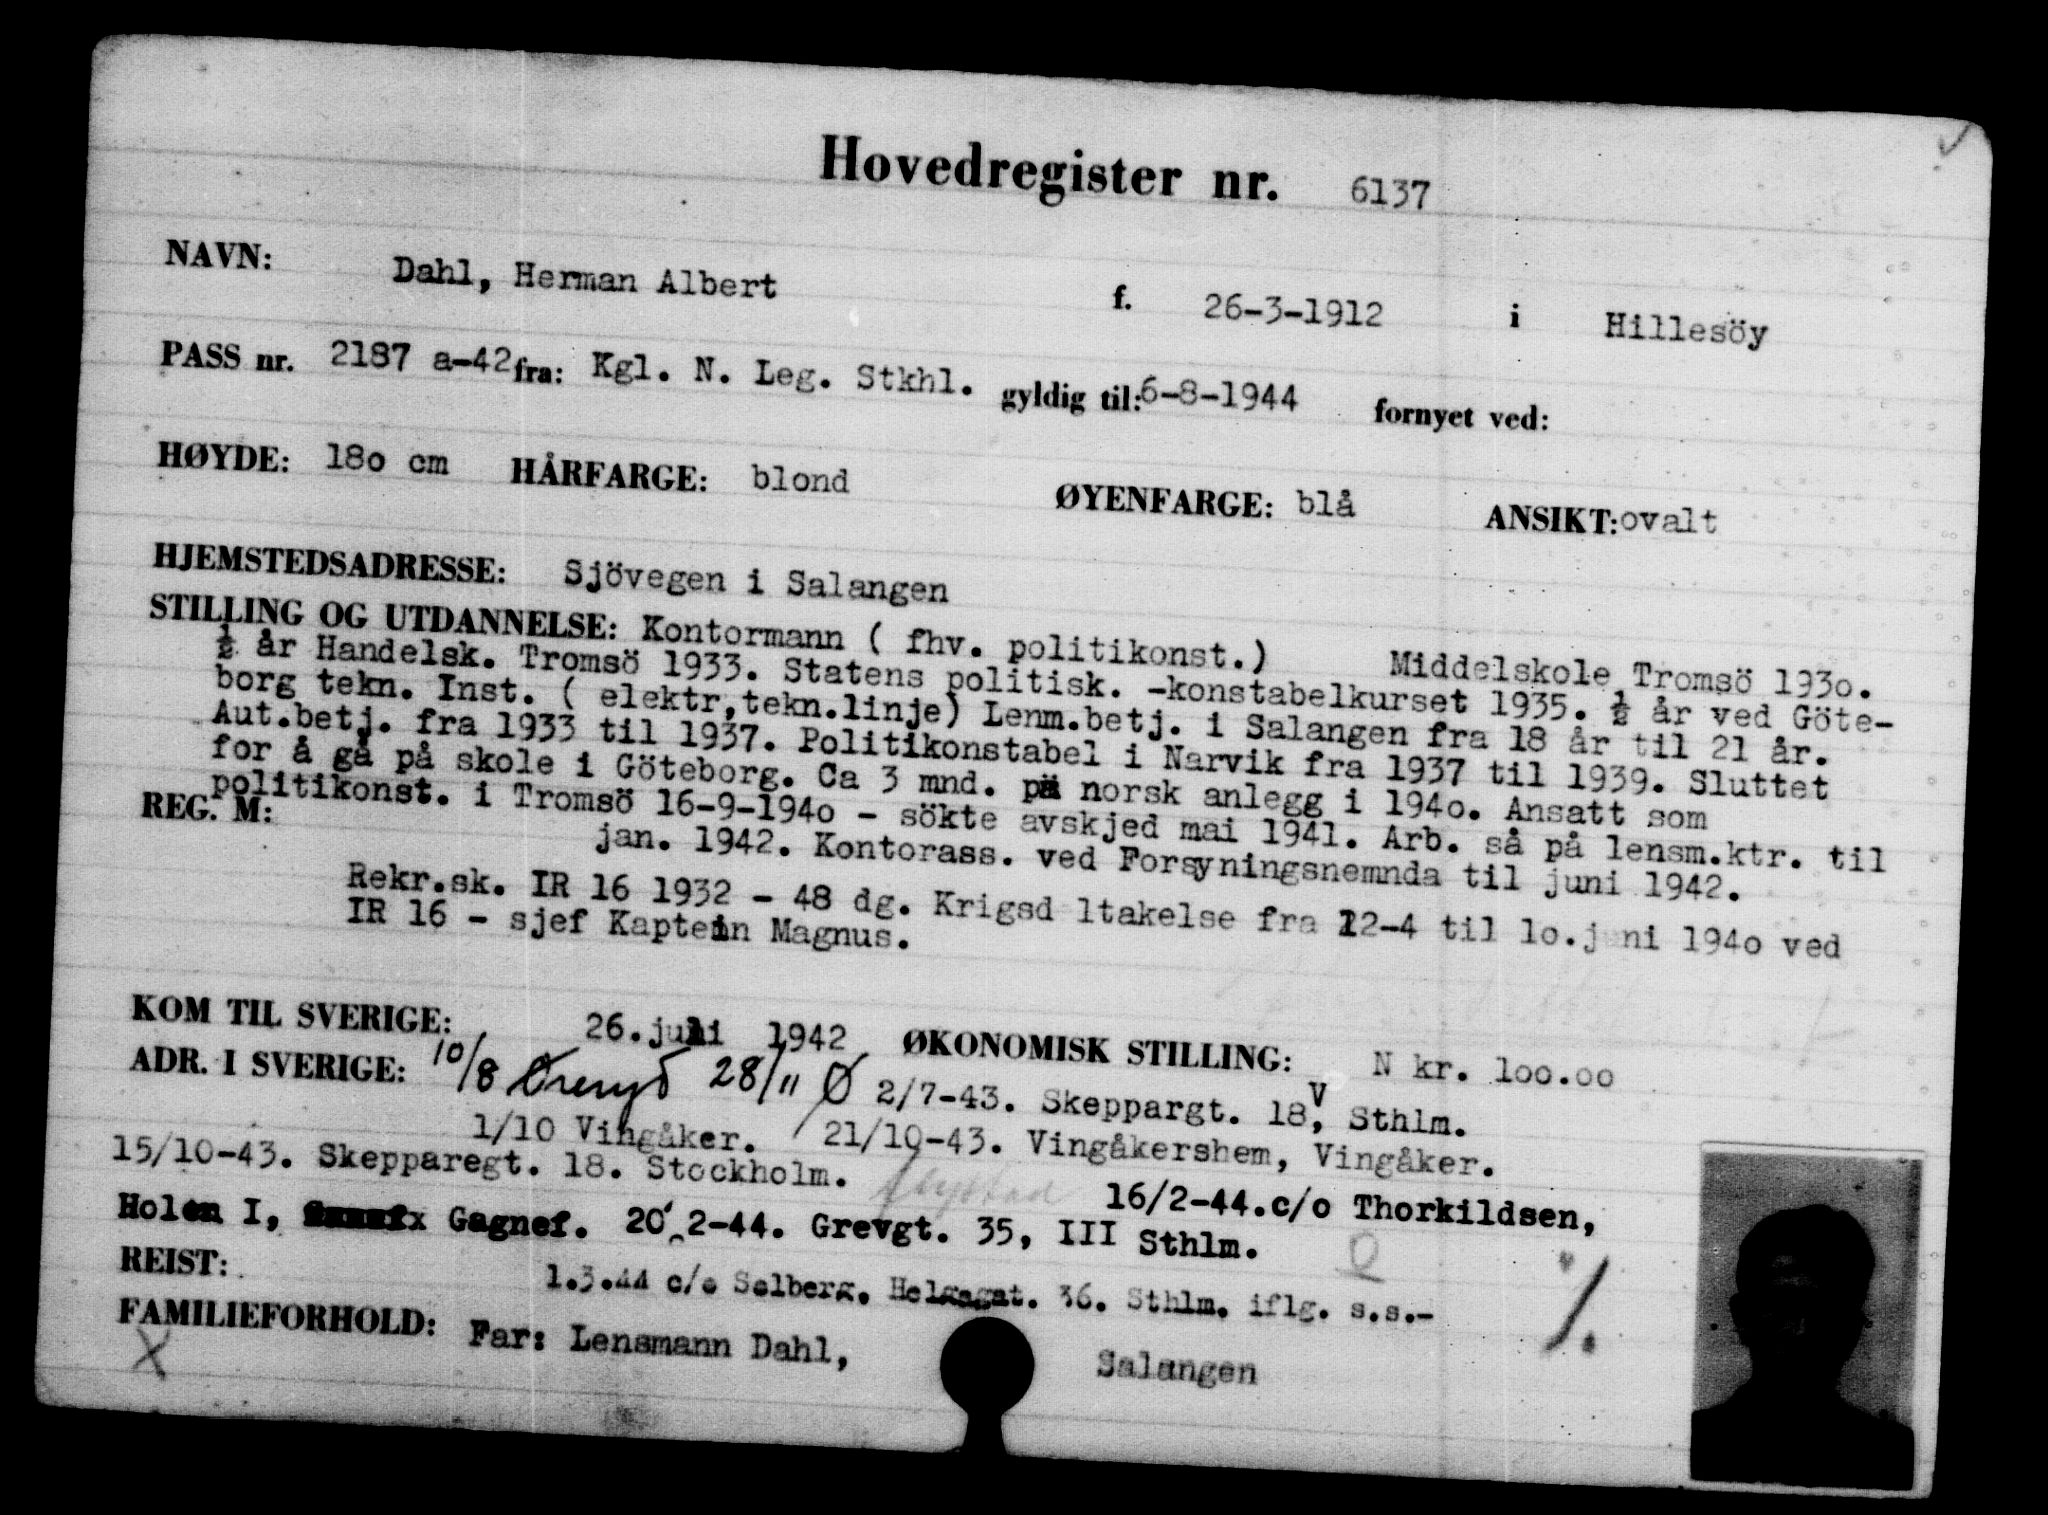 Hovedregister nr. 6137
NAVN: Dahl, Herman Albert f. 26-3-1912 i Hillesöy
PASS nr. 2187 a-42 fra: Kgl. N. Leg. Stkhl. gyldig til: 6-8-1944 fornyet ved:
HØYDE: 18o cm HÅRFARGE: blond ØYENFARGE: blå ANSIKT: ovalt
HJEMSTEDSADRESSE: Sjövegen i Salangen
STILLING OG UTDANNELSE: Kontormann ( fhv. politikonst.) Middelskole Tromsö 193o.
½ år Handelsk. Tromsö 1933. Statens politisk. -konstabelkurset 1935. ½ år ved Göte-
borg tekn. Inst. ( elektr,tekn.linje) Lenm.betj. i Salangen fra 18 år til 21 år.
Aut.betj. fra 1933 til 1937. Politikonstabel i Narvik fra 1937 til 1939. Sluttet
for å gå på skole i Göteborg. Ca 3 mnd. på norsk anlegg i 194o. Ansatt som
politikonst. i Tromsö 16-9-194o - sökte avskjed mai 1941. Arb. så på lensm.ktr. til
REG. M: jan. 1942. Kontorass. ved Forsyningsnemnda til juni 1942.
Rekr.sk. IR 16 1932 - 48 dg. Krigsd ltakelse fra 12-4 til lo.juni 194o ved
IR 16 - sjef Kaptein Magnus.
KOM TIL SVERIGE: 26.juli 1942 ØKONOMISK STILLING: N kr. loo.oo
ADR. I SVERIGE: 10/8 Öreryd 28/11 Ø 2/7-43. Skeppargt. 18 V, Sthlm.
1/10 Vingåker. 21/10-43. Vingåkershem, Vingåker.
15/10-43. Skepparegt. 18. Stockholm. 16/2-44.c/o Thorkildsen,
Holen I, Gagnef. 20 2-44. Grevgt. 35, III Sthlm.
REIST: 1.3.44 c/o Solberg, Helgagat. 36. Sthlm. iflg. s.s.-
FAMILIEFORHOLD: Far: Lensmann Dahl, Salangen
X